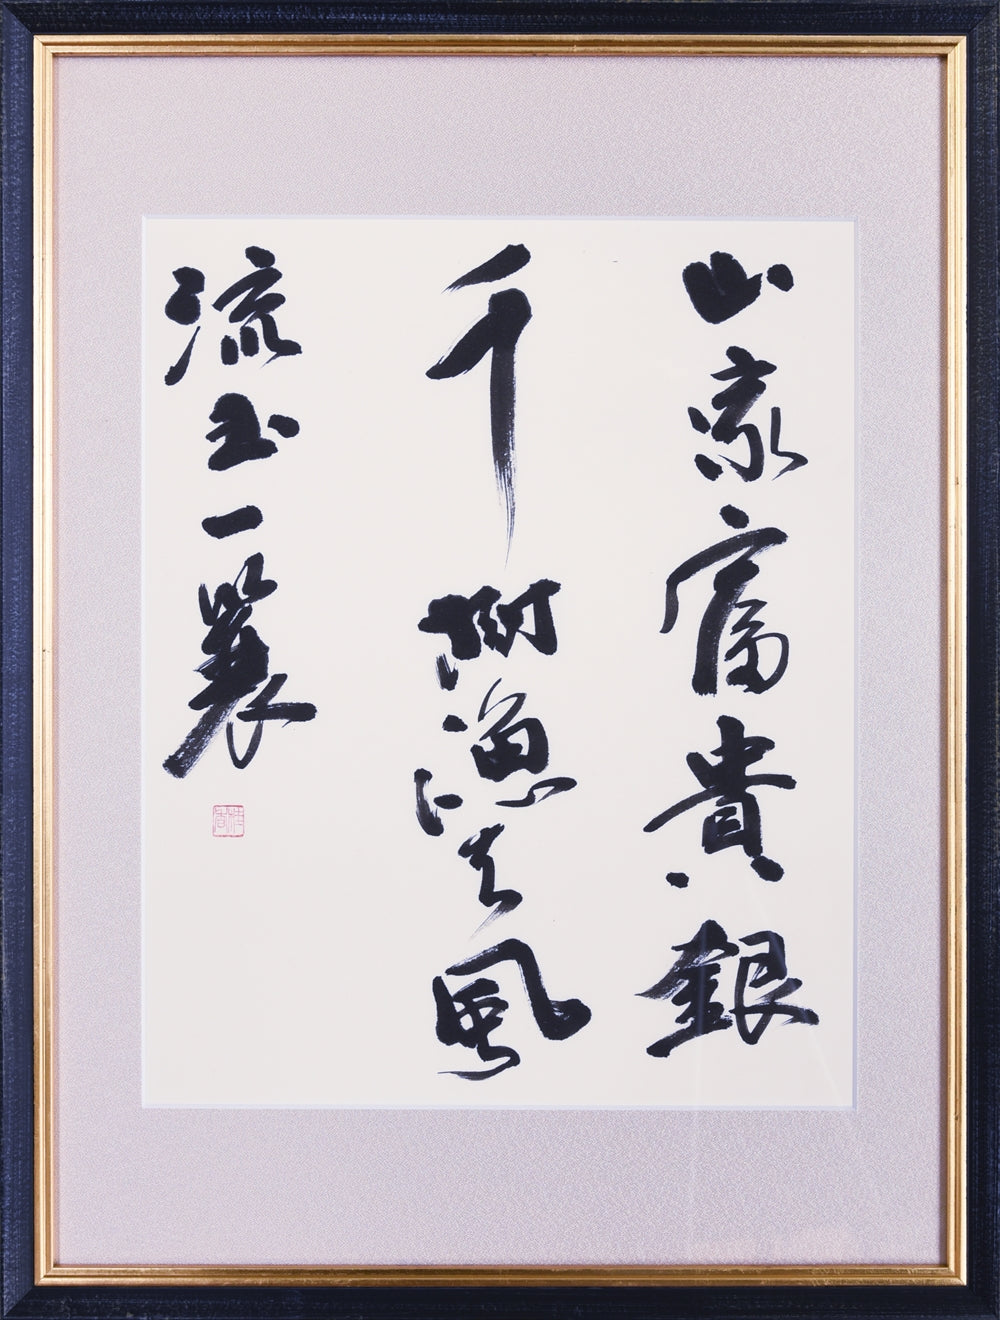 山家富貴銀
千樹漁夫風
流玉一蓑